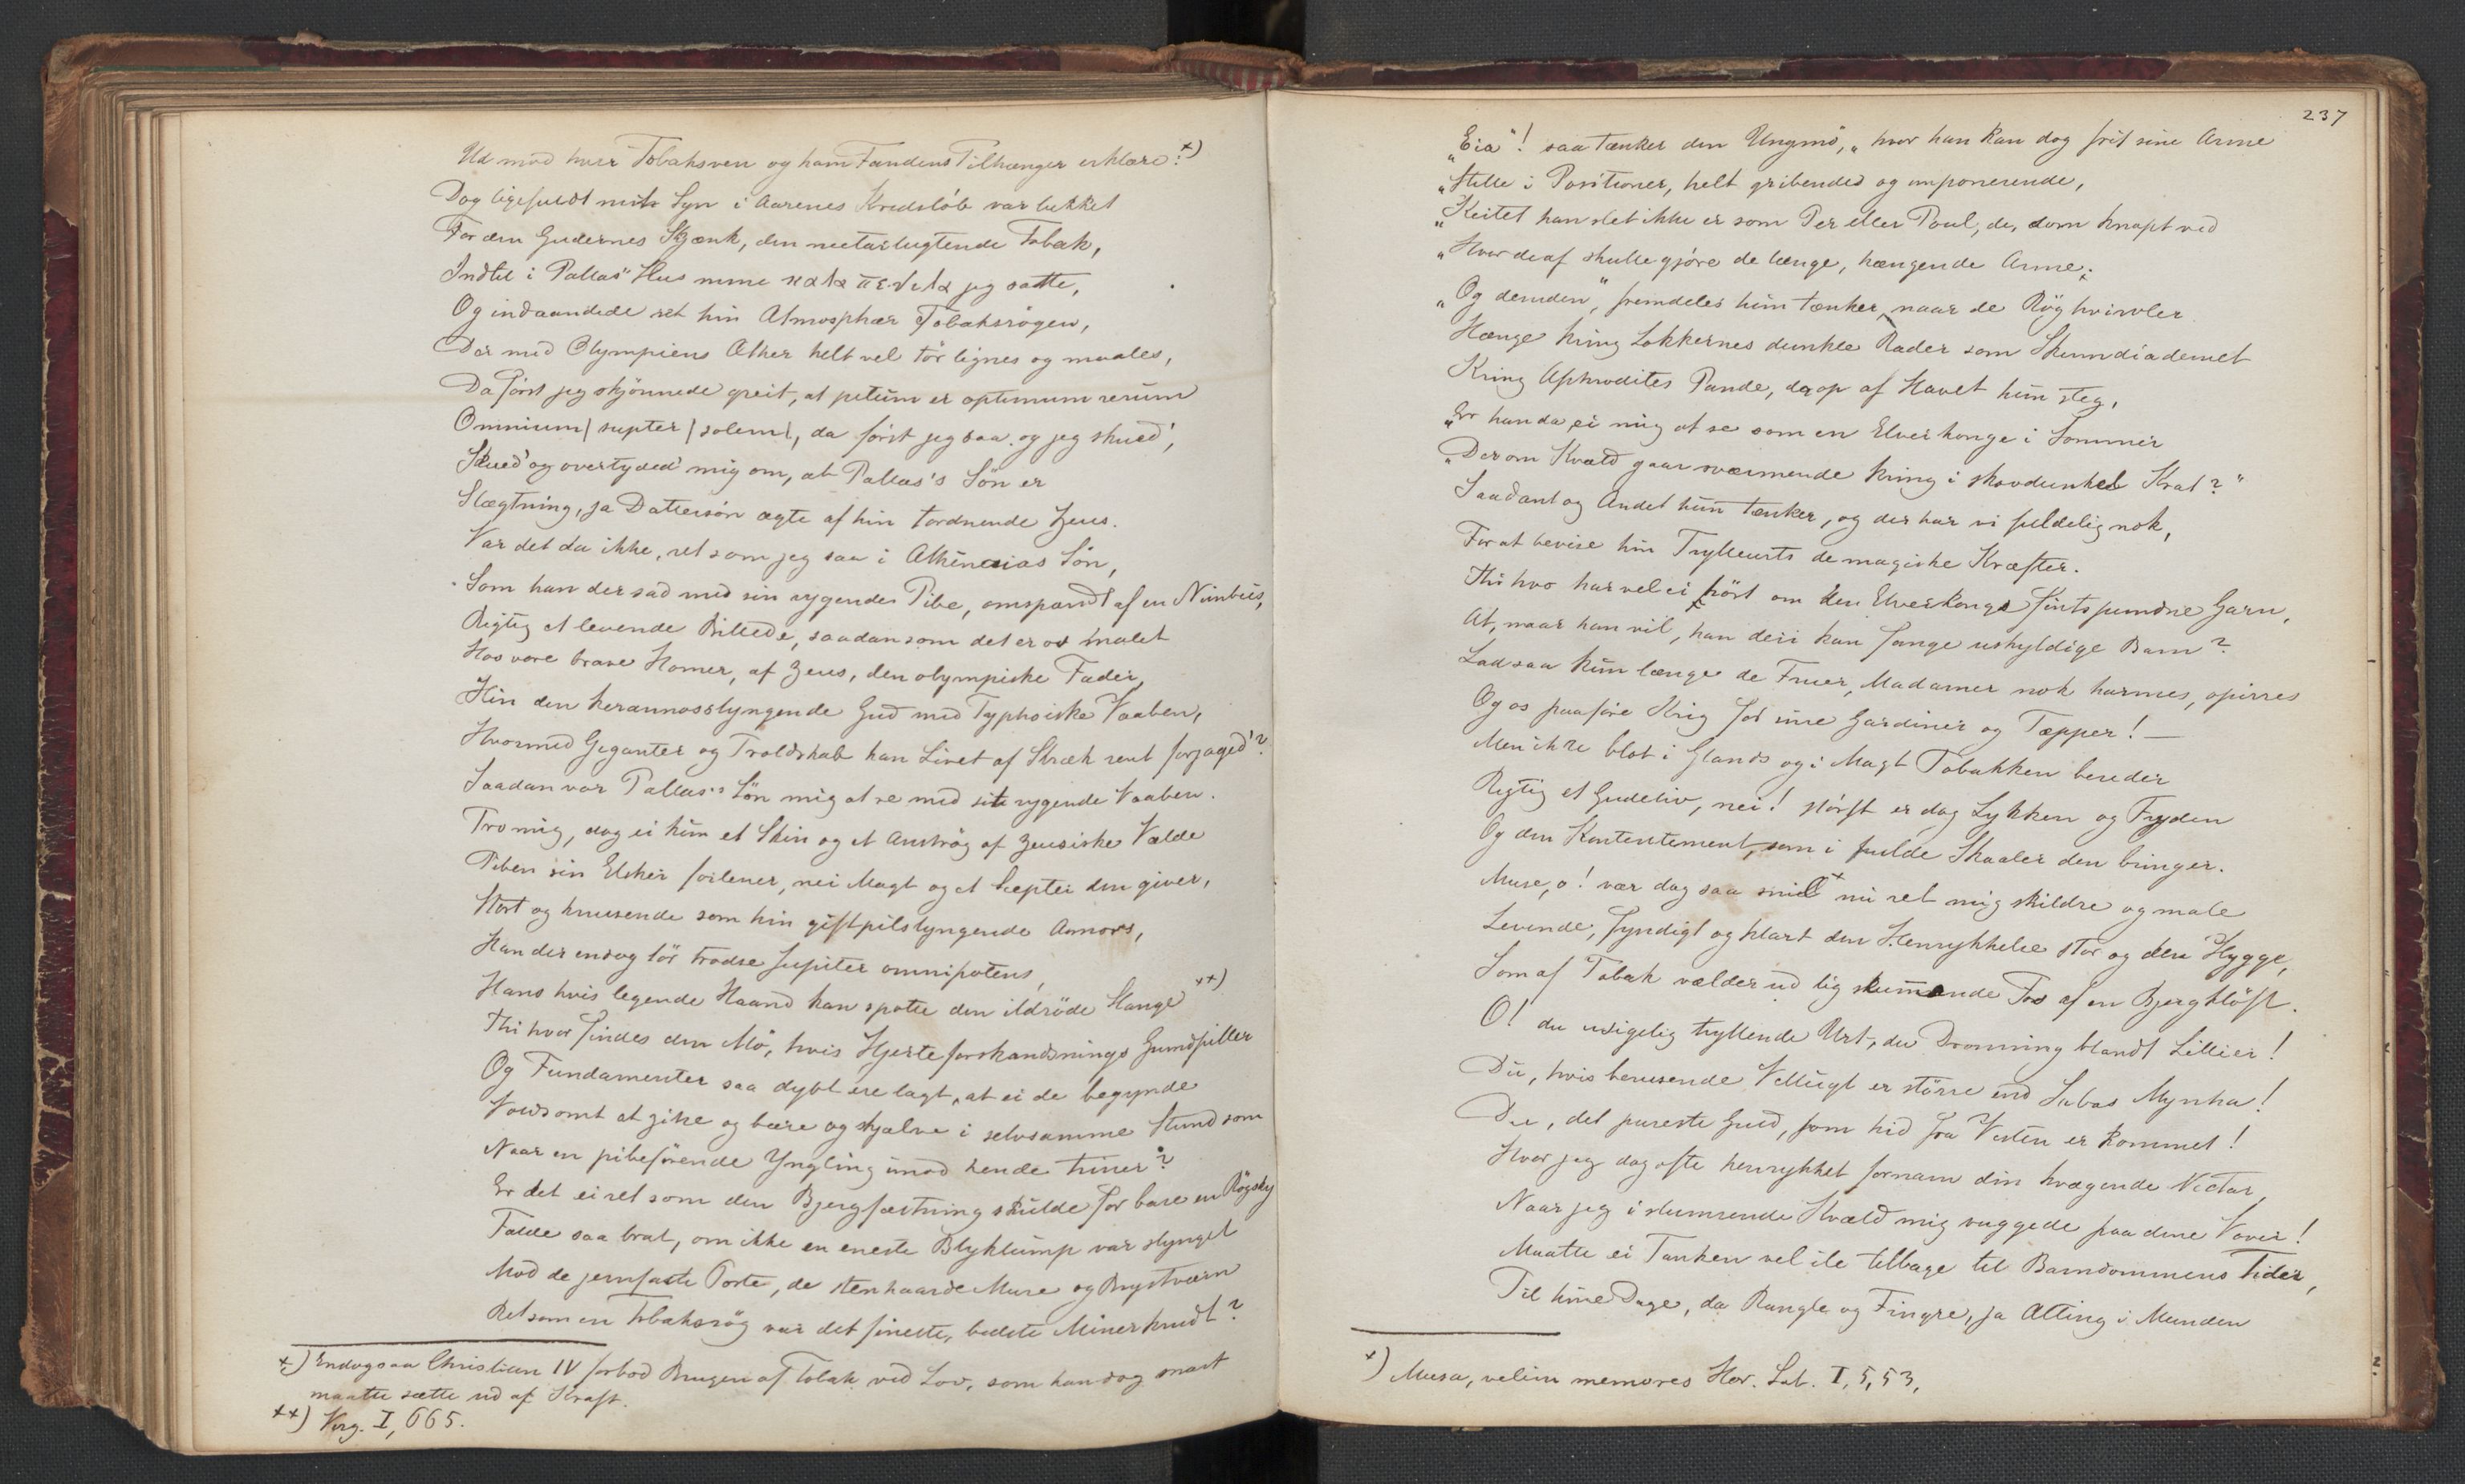 Ud mod hver Tobaksven og ham Fandens Tilhænger erklære? *)
Dog ligefuldt mit Syn i Aarenes Kredsløb var lukket
For den Gudernes Skjænk, den nectarlugtende Tobak,
Indtil i Pallas' Hus mine καλα πεδιλα jeg satte,
Og indaandede ret hin Atmosphær Tobaksrøgen,
Der med Olympiens Æther helt vel tør lignes og maales,
Da först jeg skjönnede greit, at petum er optimum rerum
Omnium | supter | solem |, da först jeg saa og jeg skued',
Skued' og overtyded' mig om, at Pallas's Sön er
Slægtning, ja Dattersön ægte af hin tordnende Zeus.
Var det da ikke, ret som jeg saa i Athenaias Sön,
Som han der sad med sin rygende Pibe, omspændt af en Nimbus,
Rigtig et levende Billede, saadan som det er os malet
Hos vore brave Homer, af Zeus, den olympiske Fader,
Hin den keraunosslyngende Gud med Typhoiske Vaaben,
Hvormed Giganter og Troldskab han Livet af Skræk rent forjaged'?
Saadan var Pallas's Sön mig at se med sit rygende Vaaben.
Tro mig, dog ei kun et Skin og et Anströg af zeusiske Vælde
Piben sin Elsker forlener, nei Magt og et Scepter den giver,
Stort og knusende som hin giftpilslyngende Amors,
Han der endog tör trodse Jupiter omnipotens,
Hans hvis legende Haand kan spotte den ildröde Slange **)
Thi hvor findes den Mö, hvis Hjerteforskandsnings Grundpiller
Og Fundamenter saa dybt ere lagt, at ei de begynde
Voldsomt at give og bæve og skjælve i selvsamme Stund som
Naar en pibeförende Yngling imod hende triner?
Er det ei ret som den Bjergfæstning skulde for bare en Rögsky
Falde saa brat, om ikke en eneste Blyklump var slynget
Mod de jernfaste Porte, de stenhaarde Mure og Brystværn
Ret som en Tobaksrög var det fineste, bedste Minerkrudt?
*) Endogsaa Christian IV forbød Brugen af Tobak ved Lov, som han dog snart
maatte sætte ud af Kraft.
**) Virg. I, 665.
237
„Eia"! saa tænker den Ungmö, „hvor han kan dog frit sine Arme
„Stille i Positioner, helt gribende og imponerende,
„Keitet han slet ikke er som Per eller Poul, de, som knapt ved
„Hvad de af skulle gjøre de lange, hængende Arme;
„Og desuden", fremdeles hun tænker, naar de Röghvirvler
Hænge kring Lokkernes dunkle Rader som Skumdiademet
Kring Aphrodites Pande, da op af Havet hun steg,
„Er han da ei mig at se som en Elverkonge i Sommer
„Der om Kvæld gaar sværmende kring i skovdunkel Krat?"
Saadant og Andet hun tænker, og der har vi fuldelig nok,
For at bevise hin Trylleurts de magiske Kræfter.
Thi hvo har vel ei hört om den Elverkonges fintspundne Garn,
At, naar han vil, han deri kan fange uskyldige Barn?
Lad saa kun længe de Fruer, Madamer nok harmes, opirres
Og os paaföre Krig for sine Gardiner og Tæpper! —
Men ikke blot i Glands og i Magt Tobakken bereder
Rigtig et Gudeliv, nei! störst er dog Lykken og Fryden
Og den Kontentement, som i fulde Skaaler den bringer.
Muse, o! vær dog saa snil *) nu ret mig skildre og male
Levende, fyndigt og klart den Henrykkelse stor og den Hygge,
Som af Tobak vælder ud lig skummende Fos af en Bjergklöft.
O! du usigelig tryllende Urt, du Dronning blandt Lillier!
Du, hvis berusende Vellugt er större end Sabas Myrrha!
Du, det pureste Guld, som hid fra Vesten er kommet!
Hvor jeg dog ofte henrykket fornam din kvægende Nectar,
Naar jeg i slumrende Kvæld mig vuggede paa dine Vover!
Maatte ei Tanken vel ile tilbage til Barndommens Tider,
Til hine Dage, da Rangle og Fingre, ja Alting i Munden
*) Musa, velim memores Hor. Sat. I, 5, 53,